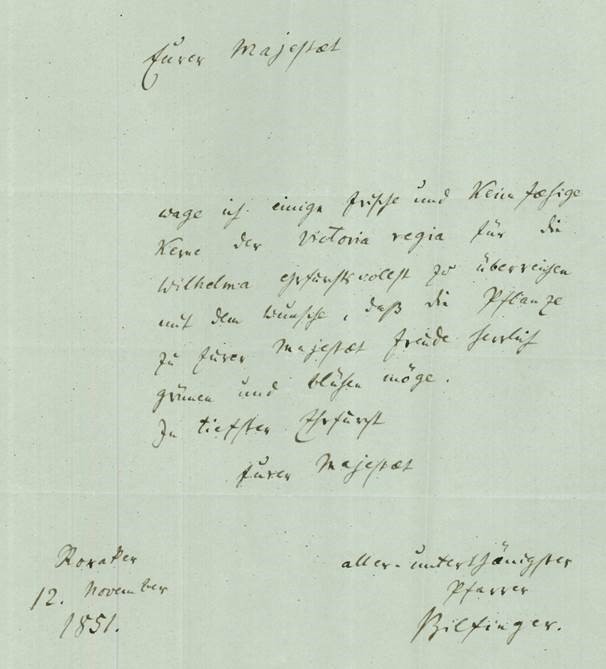 Eurer Majestæt
wage ich einige frische und Keimfæhige
Kerne der Victoria regia für die
Wilhelma ehrfurchtsvollst zu überreichen
mit dem Wunsche, daß die Pflanze
zu Eurer Majestæt Freude herrlich
grünen und blühen möge.
In tiefster Ehrfurcht
Eurer Majestæt
aller-unterthänigster
Pfarrer
Bilfinger.
12. November
1851.